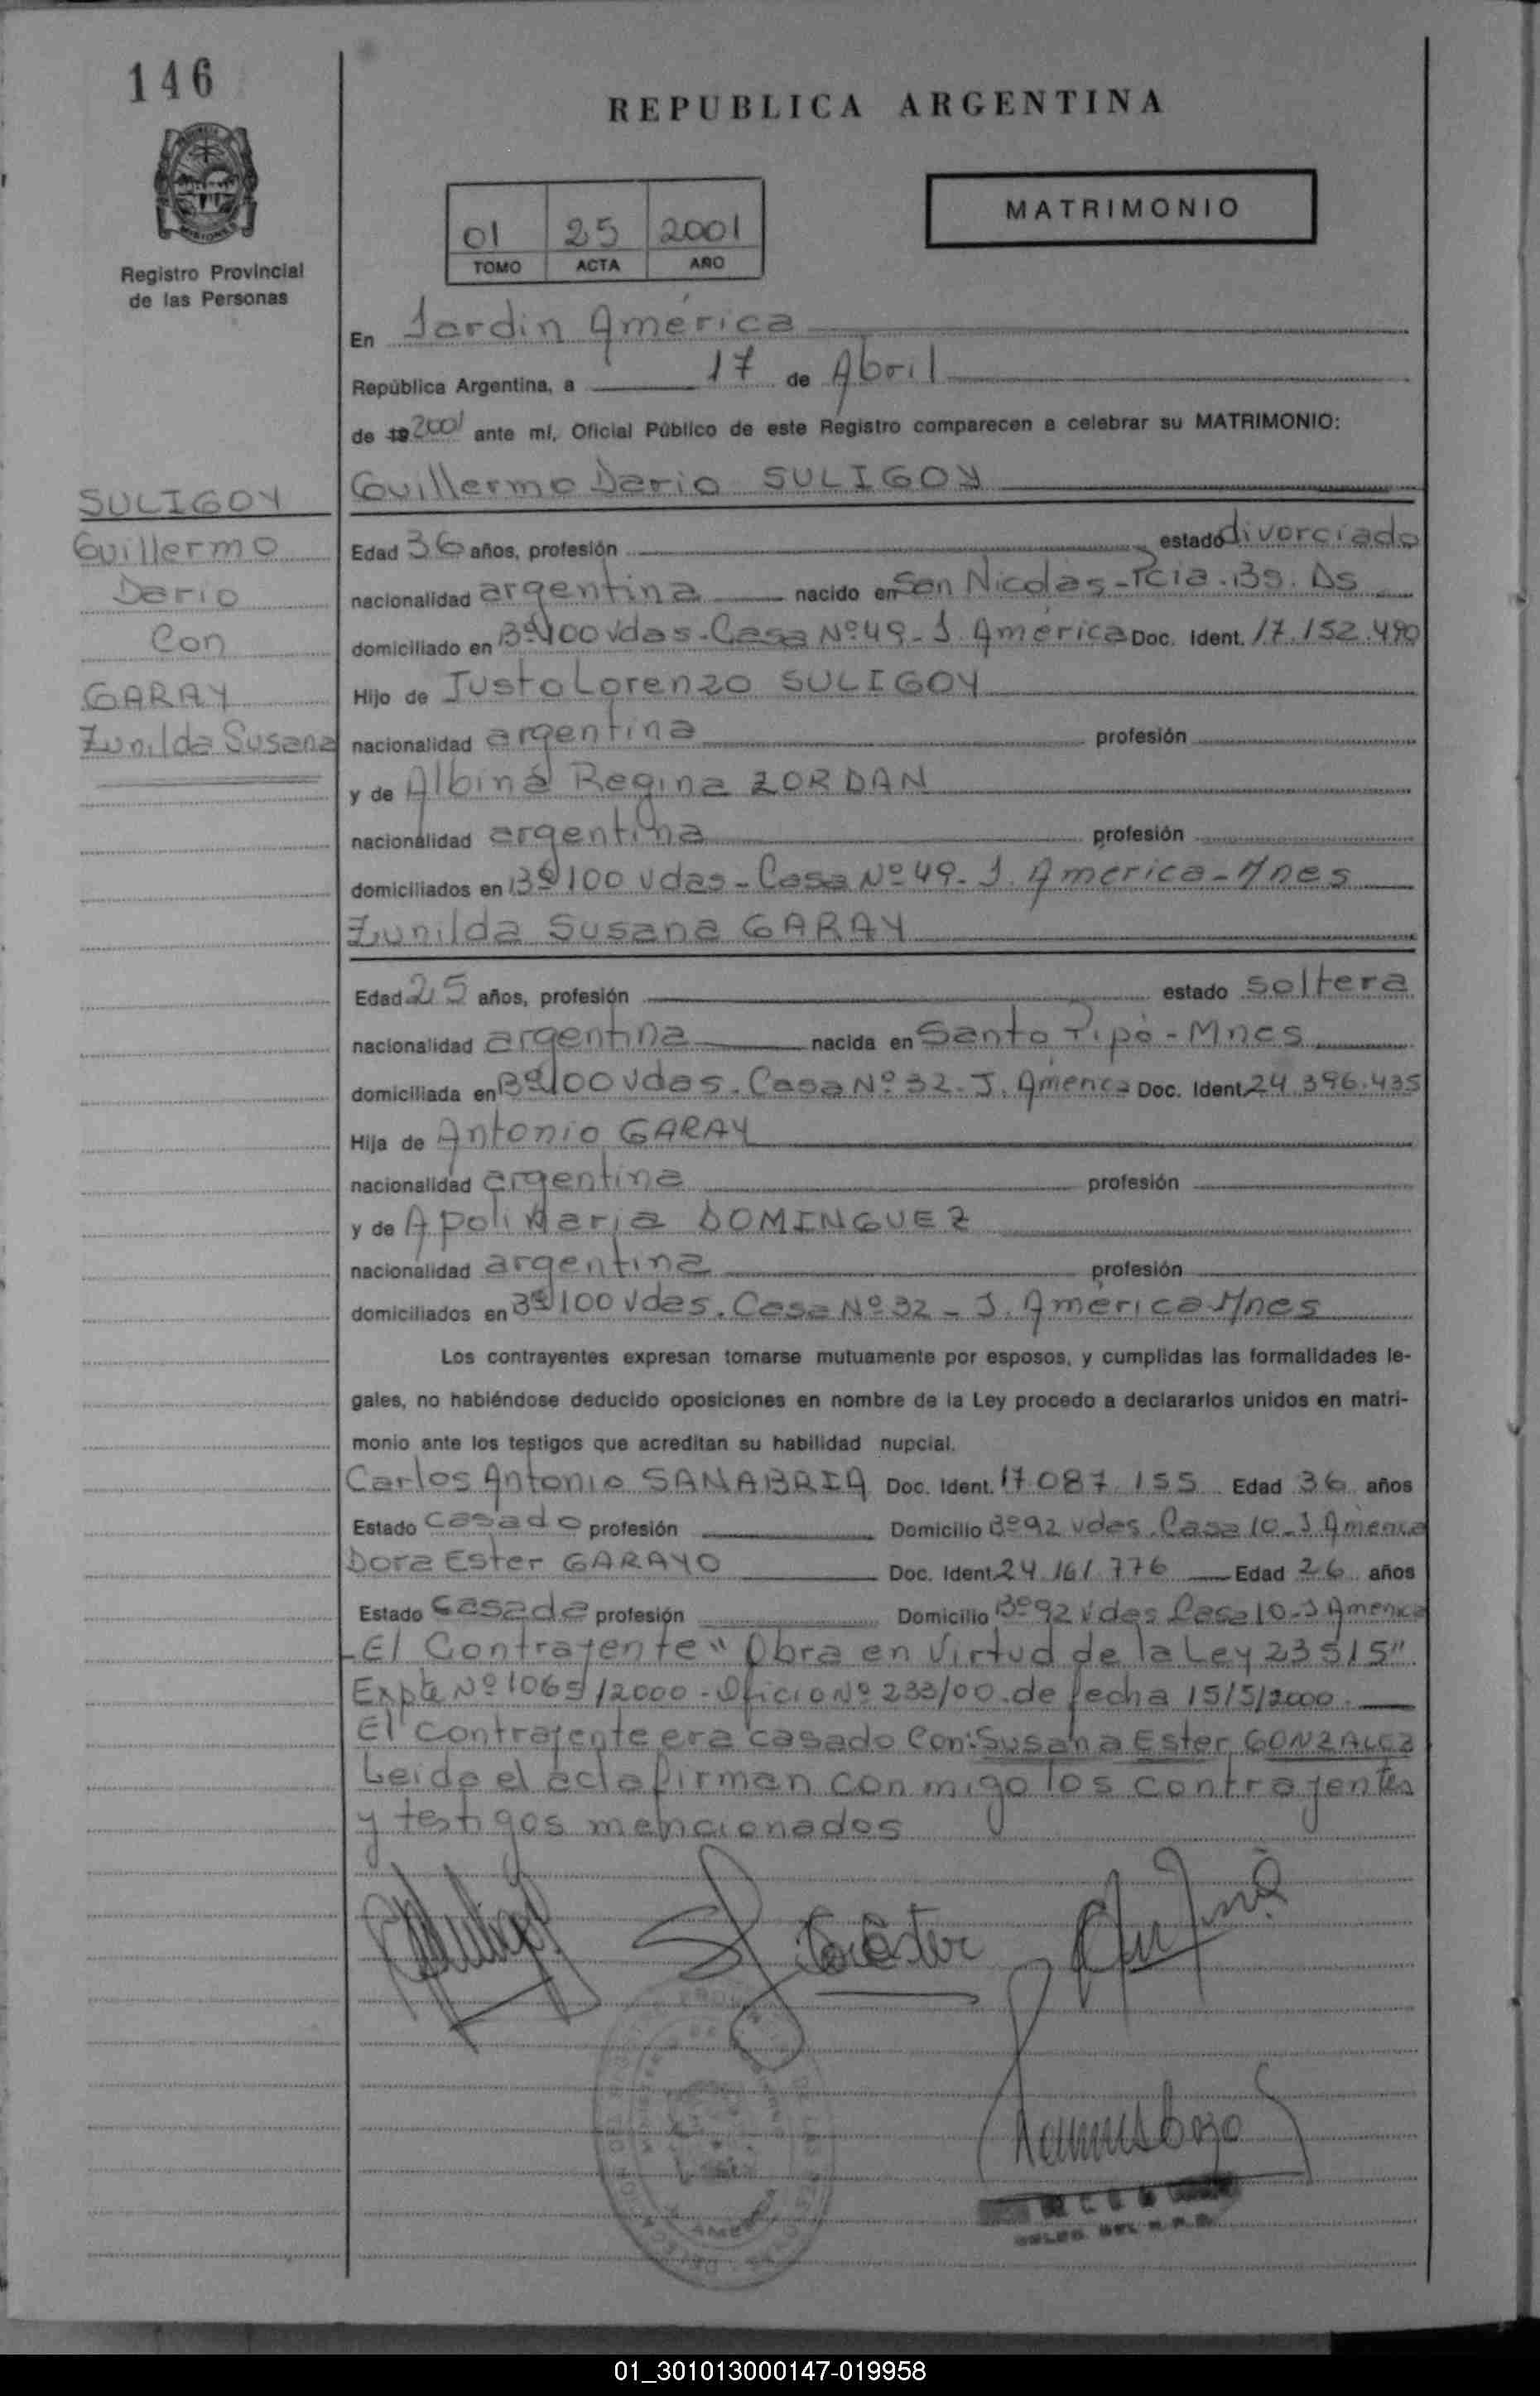 146
REPUBLICA ARGENTINA
MISIONES
Registro Provincial
de las Personas
01 25 2001
TOMO ACTA AÑO
MATRIMONIO
En Jardin América
República Argentina, a 17 de Abril
de 19 2001 ante mí, Oficial Público de este Registro comparecen a celebrar su MATRIMONIO:
Guillermo Dario SULIGOY
SULIGOY
Guillermo
Dario
Con
GARAY
Zunilda Susana
Edad 36 años, profesión estado divorciado
nacionalidad argentina nacido en San Nicolás - Pcia. Bs. As
domiciliado en Bº 100 Vdas - Casa Nº 49 - J. América Doc. Ident. 17.152.490
Hijo de Justo Lorenzo SULIGOY
nacionalidad argentina profesión
y de Albina Regina ZORDAN
nacionalidad argentina profesión
domiciliados en Bº 100 Vdas - Casa Nº 49 - J. América - Mnes
Zunilda Susana GARAY
Edad 25 años, profesión estado soltera
nacionalidad argentina nacida en Santo Pipó - Mnes
domiciliada en Bº 100 Vdas. Casa Nº 32 - J. América Doc. Ident. 24.396.435
Hija de Antonio GARAY
nacionalidad argentina profesión
y de Apolinaria DOMINGUEZ
nacionalidad argentina profesión
domiciliados en Bº 100 Vdas. Casa Nº 32 - J. América - Mnes
Los contrayentes expresan tomarse mutuamente por esposos, y cumplidas las formalidades le-
gales, no habiéndose deducido oposiciones en nombre de la Ley procedo a declararlos unidos en matri-
monio ante los testigos que acreditan su habilidad nupcial.
Carlos Antonio SANABRIA Doc. Ident. 17.087.155 Edad 36 años
Estado casado profesión Domicilio Bº 92 Vdas. Casa 10 - J América
Dora Ester GARAYO Doc. Ident. 24.161.776 Edad 26 años
Estado casada profesión Domicilio Bº 92 Vdas Casa 10 - J América
- El Contrayente "Obra en Virtud de la Ley 23515"
Expte Nº 1065/2000 - Oficio Nº 233/00. de fecha 15/5/2000.
El contrayente era casado Con: Susana Ester GONZALEZ
Leida el acta firman con migo los contrayentes
y testigos mencionados
01_301013000147-019958